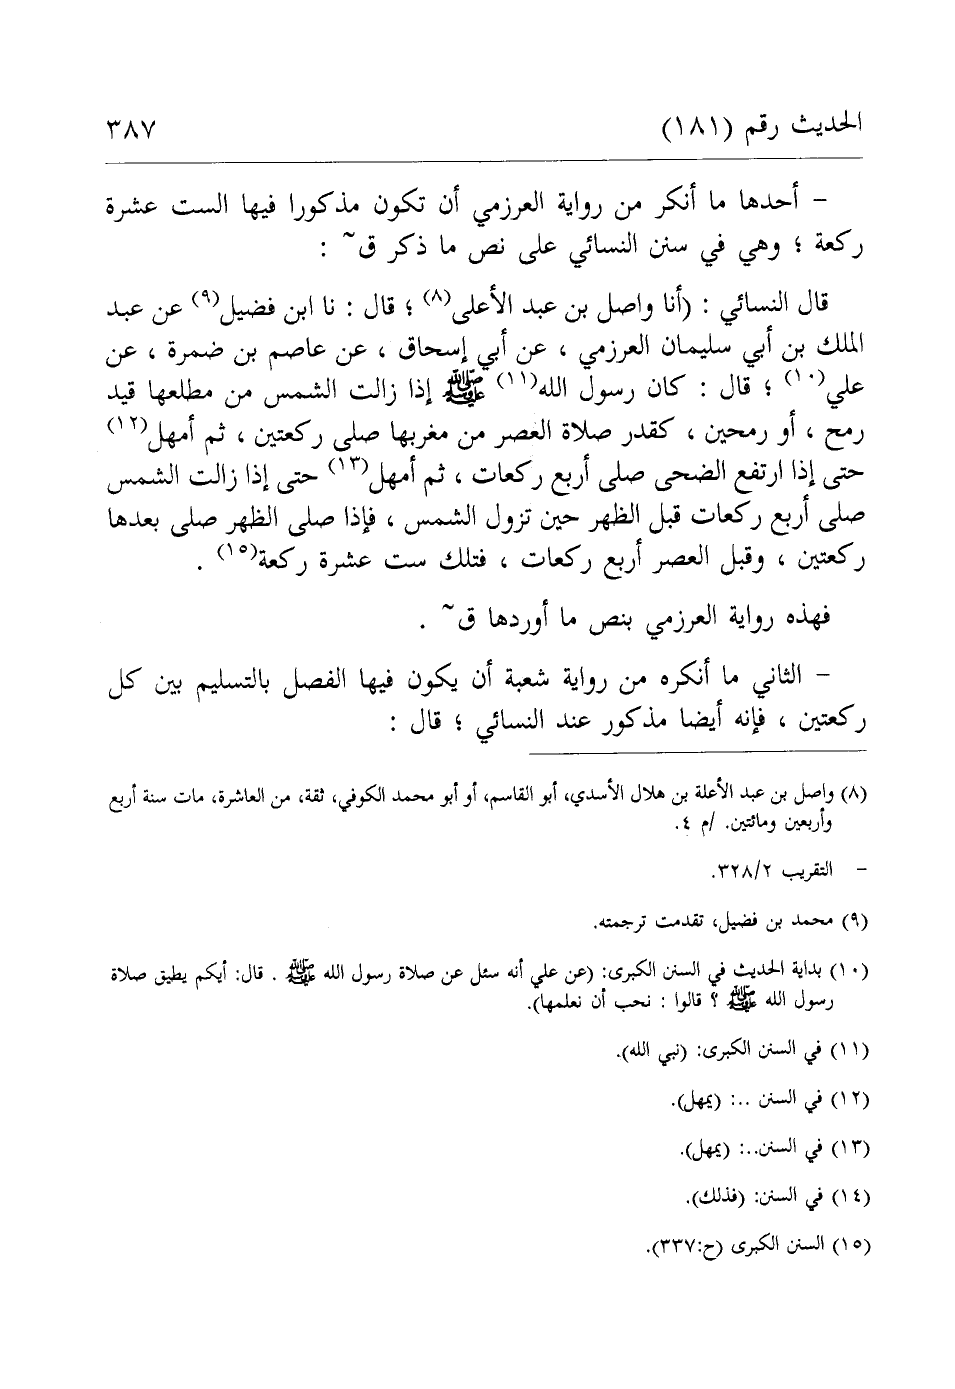 الحديث رقم (١٨١)
٣٨٧
- أحدها ما أنكر من رواية العرزمي أن تكون مذكورا فيها الست عشرة
ركعة ؛ وهي في سنن النسائي على نص ما ذكر ق~ :
قال النسائي : (أنا واصل بن عبد الأعلى(٨) ؛ قال : نا ابن فضيل(٩) عن عبد
الملك بن أبي سليمان العرزمي ، عن أبي إسحاق ، عن عاصم بن ضمرة ، عن
علي(١٠) ؛ قال : كان رسول الله(١١) ﷺ إذا زالت الشمس من مطلعها قيد
رمح ، أو رمحين ، كقدر صلاة العصر من مغربها صلى ركعتين ، ثم أمهل(١٢)
حتى إذا ارتفع الضحى صلى أربع ركعات ، ثم أمهل(١٣) حتى إذا زالت الشمس
صلى أربع ركعات قبل الظهر حين تزول الشمس ، فإذا صلى الظهر صلى بعدها
ركعتين ، وقبل العصر أربع ركعات ، فتلك ست عشرة ركعة(١٥) .
فهذه رواية العرزمي بنص ما أوردها ق~ .
- الثاني ما أنكره من رواية شعبة أن يكون فيها الفصل بالتسليم بين كل
ركعتين ، فإنه أيضا مذكور عند النسائي ؛ قال :
(٨) واصل بن عبد الأعلة بن هلال الأسدي، أبو القاسم، أو أبو محمد الكوفي، ثقة، من العاشرة، مات سنة أربع
وأربعين ومائتين. /م ٤.
- التقريب ٣٢٨/٢.
(٩) محمد بن فضيل، تقدمت ترجمته.
(١٠) بداية الحديث في السنن الكبرى: (عن علي أنه سئل عن صلاة رسول الله ﷺ . قال: أيكم يطيق صلاة
رسول الله ﷺ ؟ قالوا : نحب أن نعلمها).
(١١) في السنن الكبرى: (نبي الله).
(١٢) في السنن ..: (يمهل).
(١٣) في السنن..: (يمهل).
(١٤) في السنن: (فذلك).
(١٥) السنن الكبرى (ح:٣٣٧).